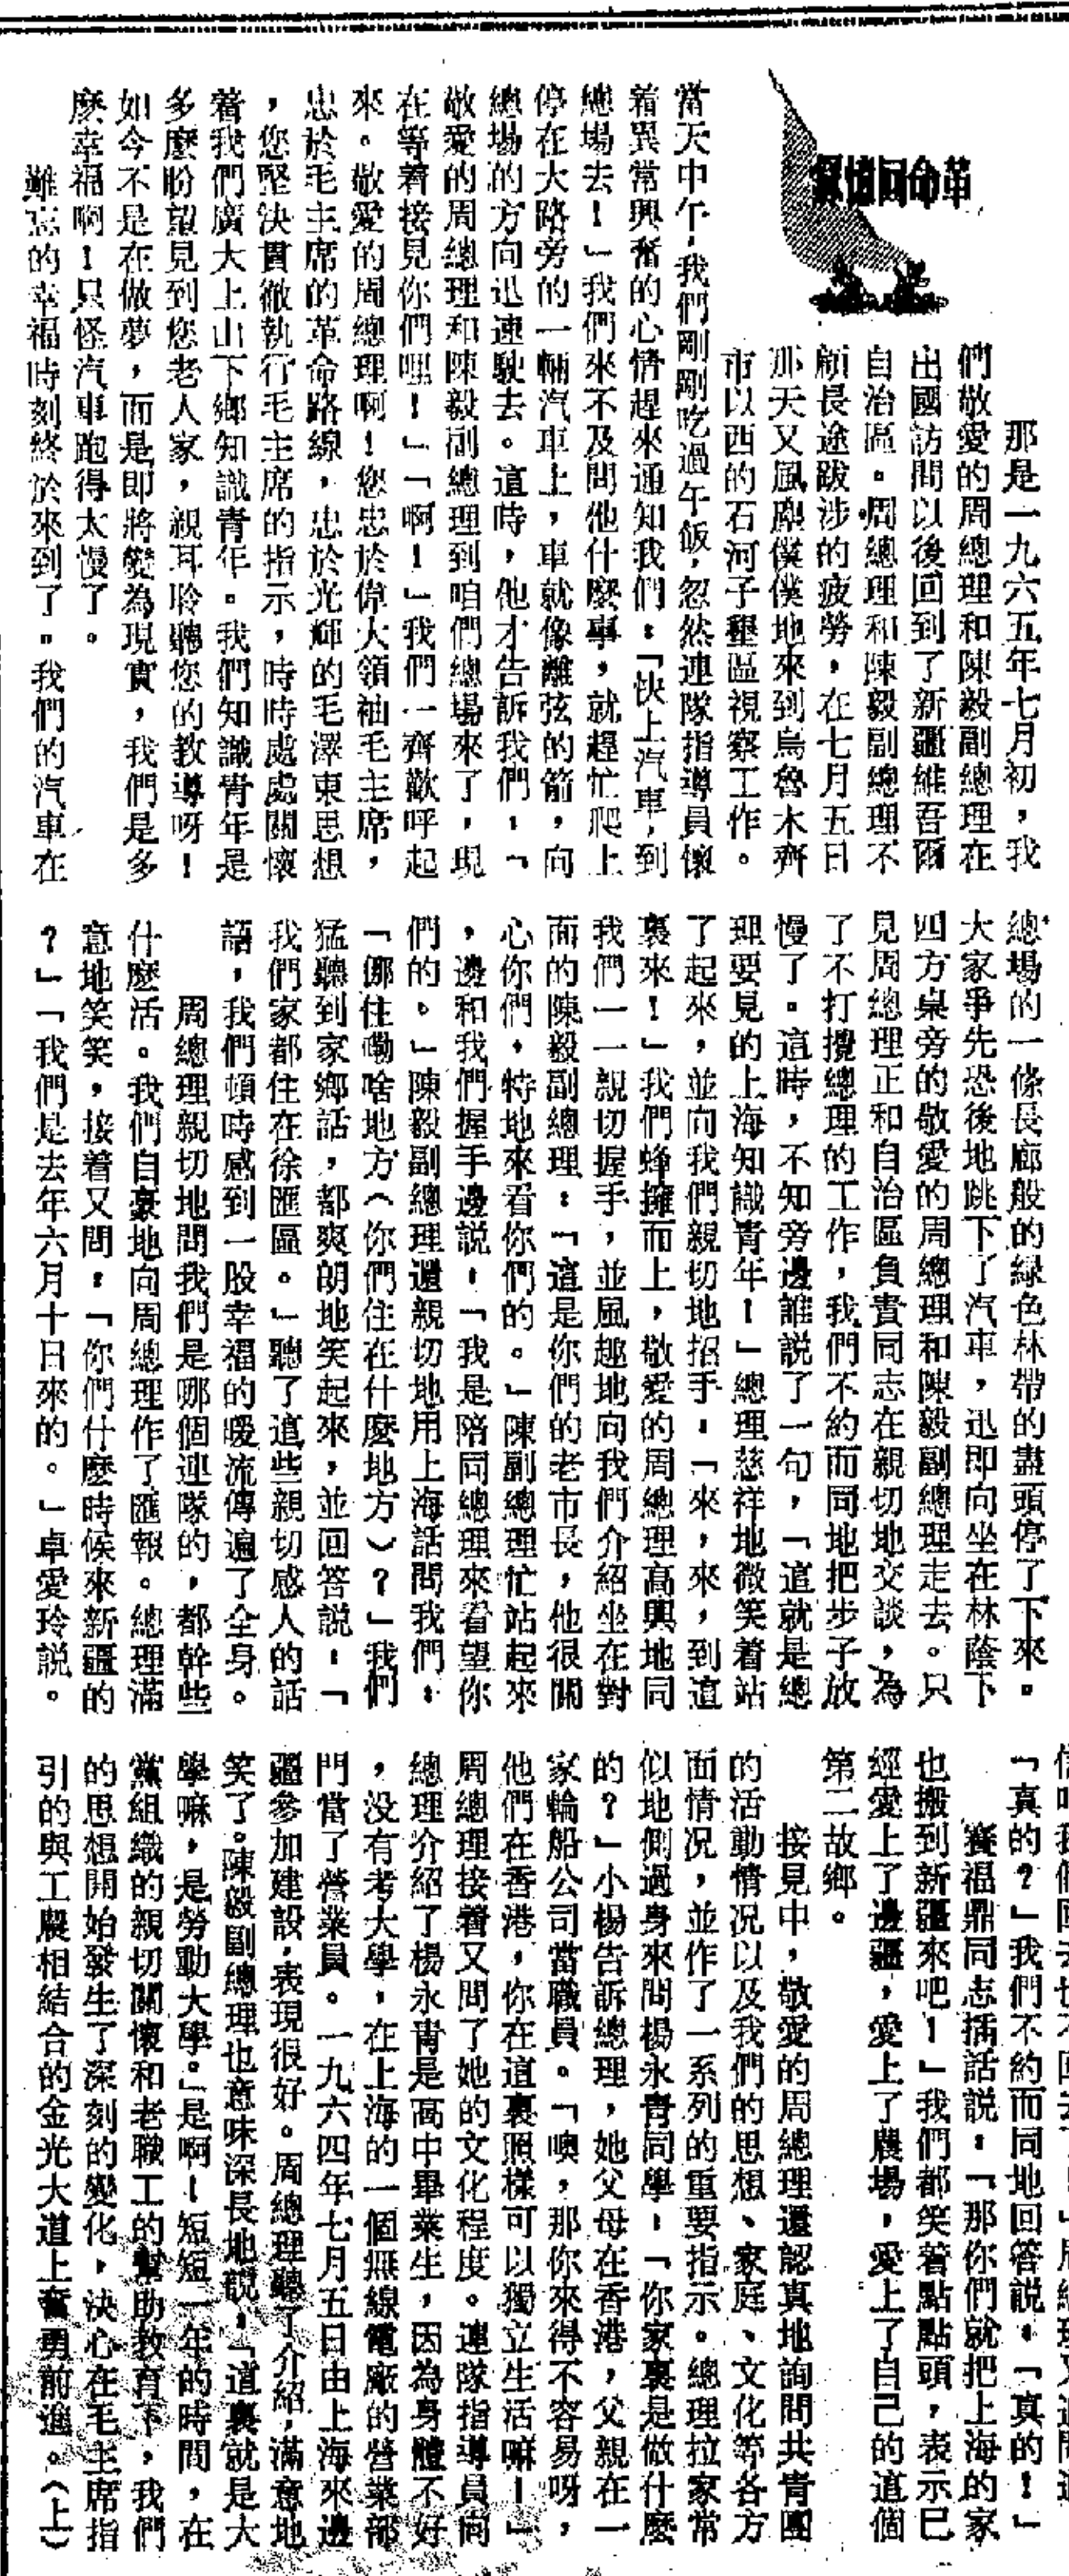 革命回憶錄
那是一九六五年七月初，我
們敬愛的周總理和陳毅副總理在
出國訪問以後回到了新疆維吾爾
自治區。周總理和陳毅副總理不
顧長途跋涉的疲勞，在七月五日
那天又風塵僕僕地來到烏魯木齊
市以西的石河子墾區視察工作。
當天中午，我們剛剛吃過午飯，忽然連隊指導員懷
着異常興奮的心情趕來通知我們：「快上汽車，到
總場去！」我們來不及問他什麼事，就趕忙爬上
停在大路旁的一輛汽車上，車就像離弦的箭，向
總場的方向迅速駛去。這時，他才告訴我們：「
敬愛的周總理和陳毅副總理到咱們總場來了，現
在等着接見你們哩！」「啊！」我們一齊歡呼起
來。敬愛的周總理啊！您忠於偉大領袖毛主席，
忠於毛主席的革命路線，忠於光輝的毛澤東思想
，您堅決貫徹執行毛主席的指示，時時處處關懷
着我們廣大上山下鄉知識青年。我們知識青年是
多麼盼望見到您老人家，親耳聆聽您的教導呀！
如今不是在做夢，而是即將變為現實，我們是多
麼幸福啊！只怪汽車跑得太慢了。
難忘的幸福時刻終於來到了。我們的汽車在
總場的一條長廊般的綠色林帶的盡頭停了下來。
大家爭先恐後地跳下了汽車，迅即向坐在林蔭下
四方桌旁的敬愛的周總理和陳毅副總理走去。只
見周總理正和自治區負責同志在親切地交談，為
了不打攪總理的工作，我們不約而同地把步子放
慢了。這時，不知旁邊誰說了一句，「這就是總
理要見的上海知識青年！」總理慈祥地微笑着站
了起來，並向我們親切地招手：「來，來，到這
裏來！」我們蜂擁而上，敬愛的周總理高興地同
我們一一親切握手，並風趣地向我們介紹坐在對
面的陳毅副總理：「這是你們的老市長，他很關
心你們，特地來看你們的。」陳副總理忙站起來
，邊和我們握手邊說：「我是陪同總理來看望你
們的。」陳毅副總理還親切地用上海話問我們：
「㑚住嘞啥地方（你們住在什麼地方）？」我們
猛聽到家鄉話，都爽朗地笑起來，並回答說：「
我們家都住在徐匯區。」聽了這些親切感人的話
語，我們頓時感到一股幸福的暖流傳遍了全身。
周總理親切地問我們是哪個連隊的，都幹些
什麼活。我們自豪地向周總理作了匯報。總理滿
意地笑笑，接着又問：「你們什麼時候來新疆的
？」「我們是去年六月十日來的。」卓愛玲說。
「真的？」我們不約而同地回答說：「真的！」
賽福鼎同志插話說：「那你們就把上海的家
也搬到新疆來吧！」我們都笑着點點頭，表示已
經愛上了邊疆，愛上了農場，愛上了自己的這個
第二故鄉。
接見中，敬愛的周總理還認真地詢問共青團
的活動情况以及我們的思想、家庭、文化等各方
面情况，並作了一系列的重要指示。總理拉家常
似地側過身來問楊永青同學：「你家裏是做什麼
的？」小楊告訴總理，她父母在香港，父親在一
家輪船公司當職員。「噢，那你來得不容易呀，
他們在香港，你在這裏照樣可以獨立生活嘛！」
周總理接着又問了她的文化程度。連隊指導員向
總理介紹了楊永青是高中畢業生，因為身體不好
，没有考大學，在上海的一個無線電廠的營業部
門當了營業員。一九六四年七月五日由上海來邊
疆參加建設，表現很好。周總理聽了介紹，滿意地
笑了。陳毅副總理也意味深長地說：「這裏就是大
學嘛，是勞動大學。」是啊！短短一年的時間，在
黨組織的親切關懷和老職工的幫助教育下，我們
的思想開始發生了深刻的變化，決心在毛主席指
引的與工農相結合的金光大道上奮勇前進。（上）